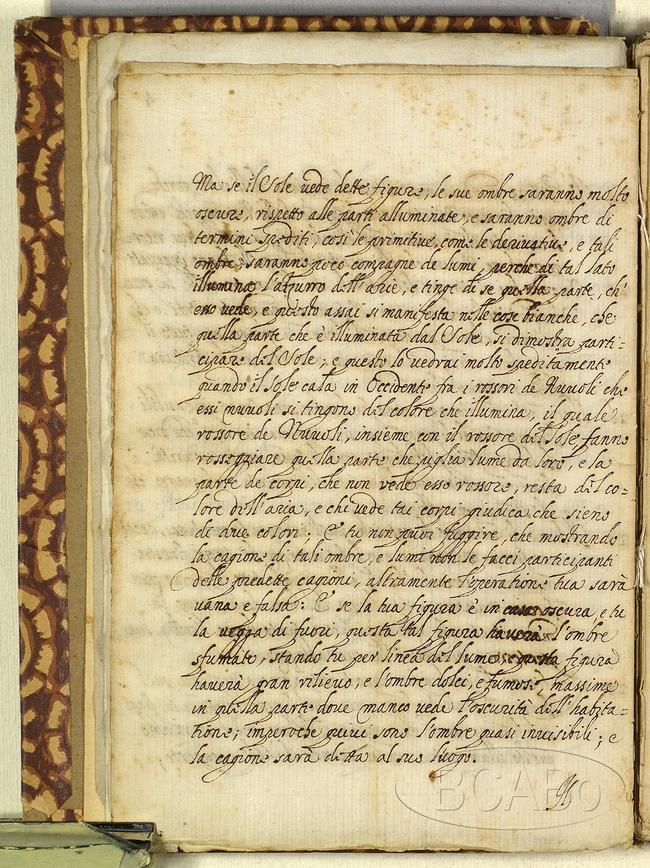 Ma se il Sole vede dette figure, le sue ombre saranno molto
oscure, rispetto alle parti alluminate, e saranno ombre di
termini spediti, così le primitive, come le derivative, e tali
ombre, saranno poco compagne de lumi, perche di tal lato
illumina l'azzurro dell'aria, e tinge di se quella parte, ch'
esso vede, e questo assai si manifesta nelle cose bianche, che
quella parte che è illuminata dal Sole, si dimostra parti=
cipare del Sole; e questo lo vedrai molto speditamente
quando il Sole cala in Occidente fra i rossori de Nuvoli che
essi nuvoli si tingono del colore che illumina, il quale
rossore de Nuvoli, insieme con il rossore del Sole fanno
rosseggiare quella parte che piglia lume da loro, e la
parte de corpi, che non vede esso rossore, resta del co=
lore dell'aria, e chi vede tai corpi giudica che sieno
de due colori; E tu non puoi fuggire, che mostrando
la cagione di tali ombre, e lumi non le facci participanti
delle predette cagioni, altramente l'operatione tua sarà
vana e falsa: E se la tua figura è in casa oscura, e tu
la veggia di fuori, questa tal figura haverà l'ombre
sfumate, stando tu per linea del lume, e questa figura
haverà gran rilievo, e l'ombre dolci, e fumose, massime
in quella parte dove manco vede l'oscurità dell'habita=
tione; imperoche quivi sono l'ombre quasi invisibili; e
la cagione sarà detta al suo luogo.
BCABo